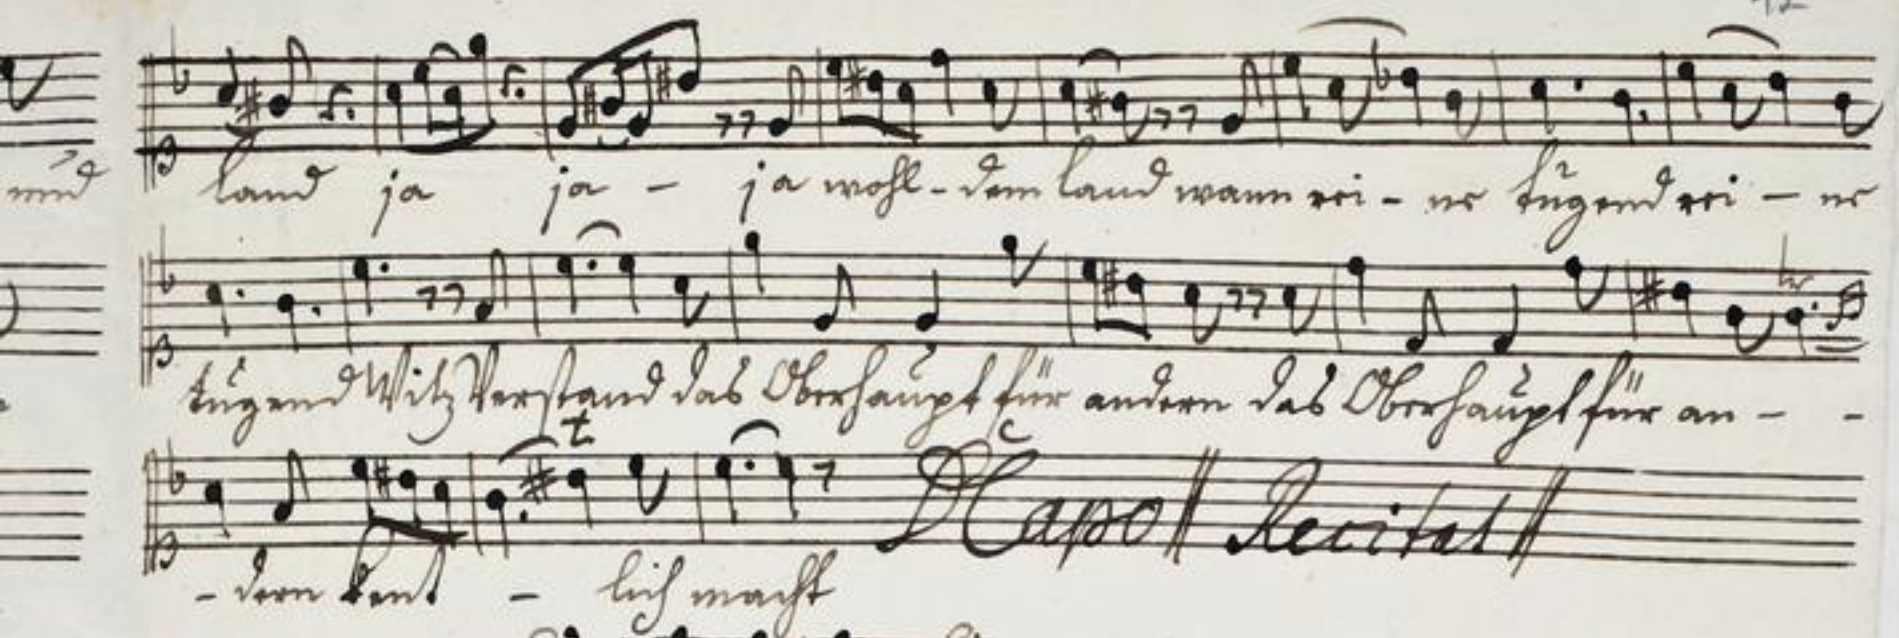 und land ja ja - ja wohl - dem land wann rei - ne tugend rei - ne
tugend Witz Verstand das Oberhaupt für andern das Oberhaupt für an - -
- dern kent - lich macht
D Capo Recitat